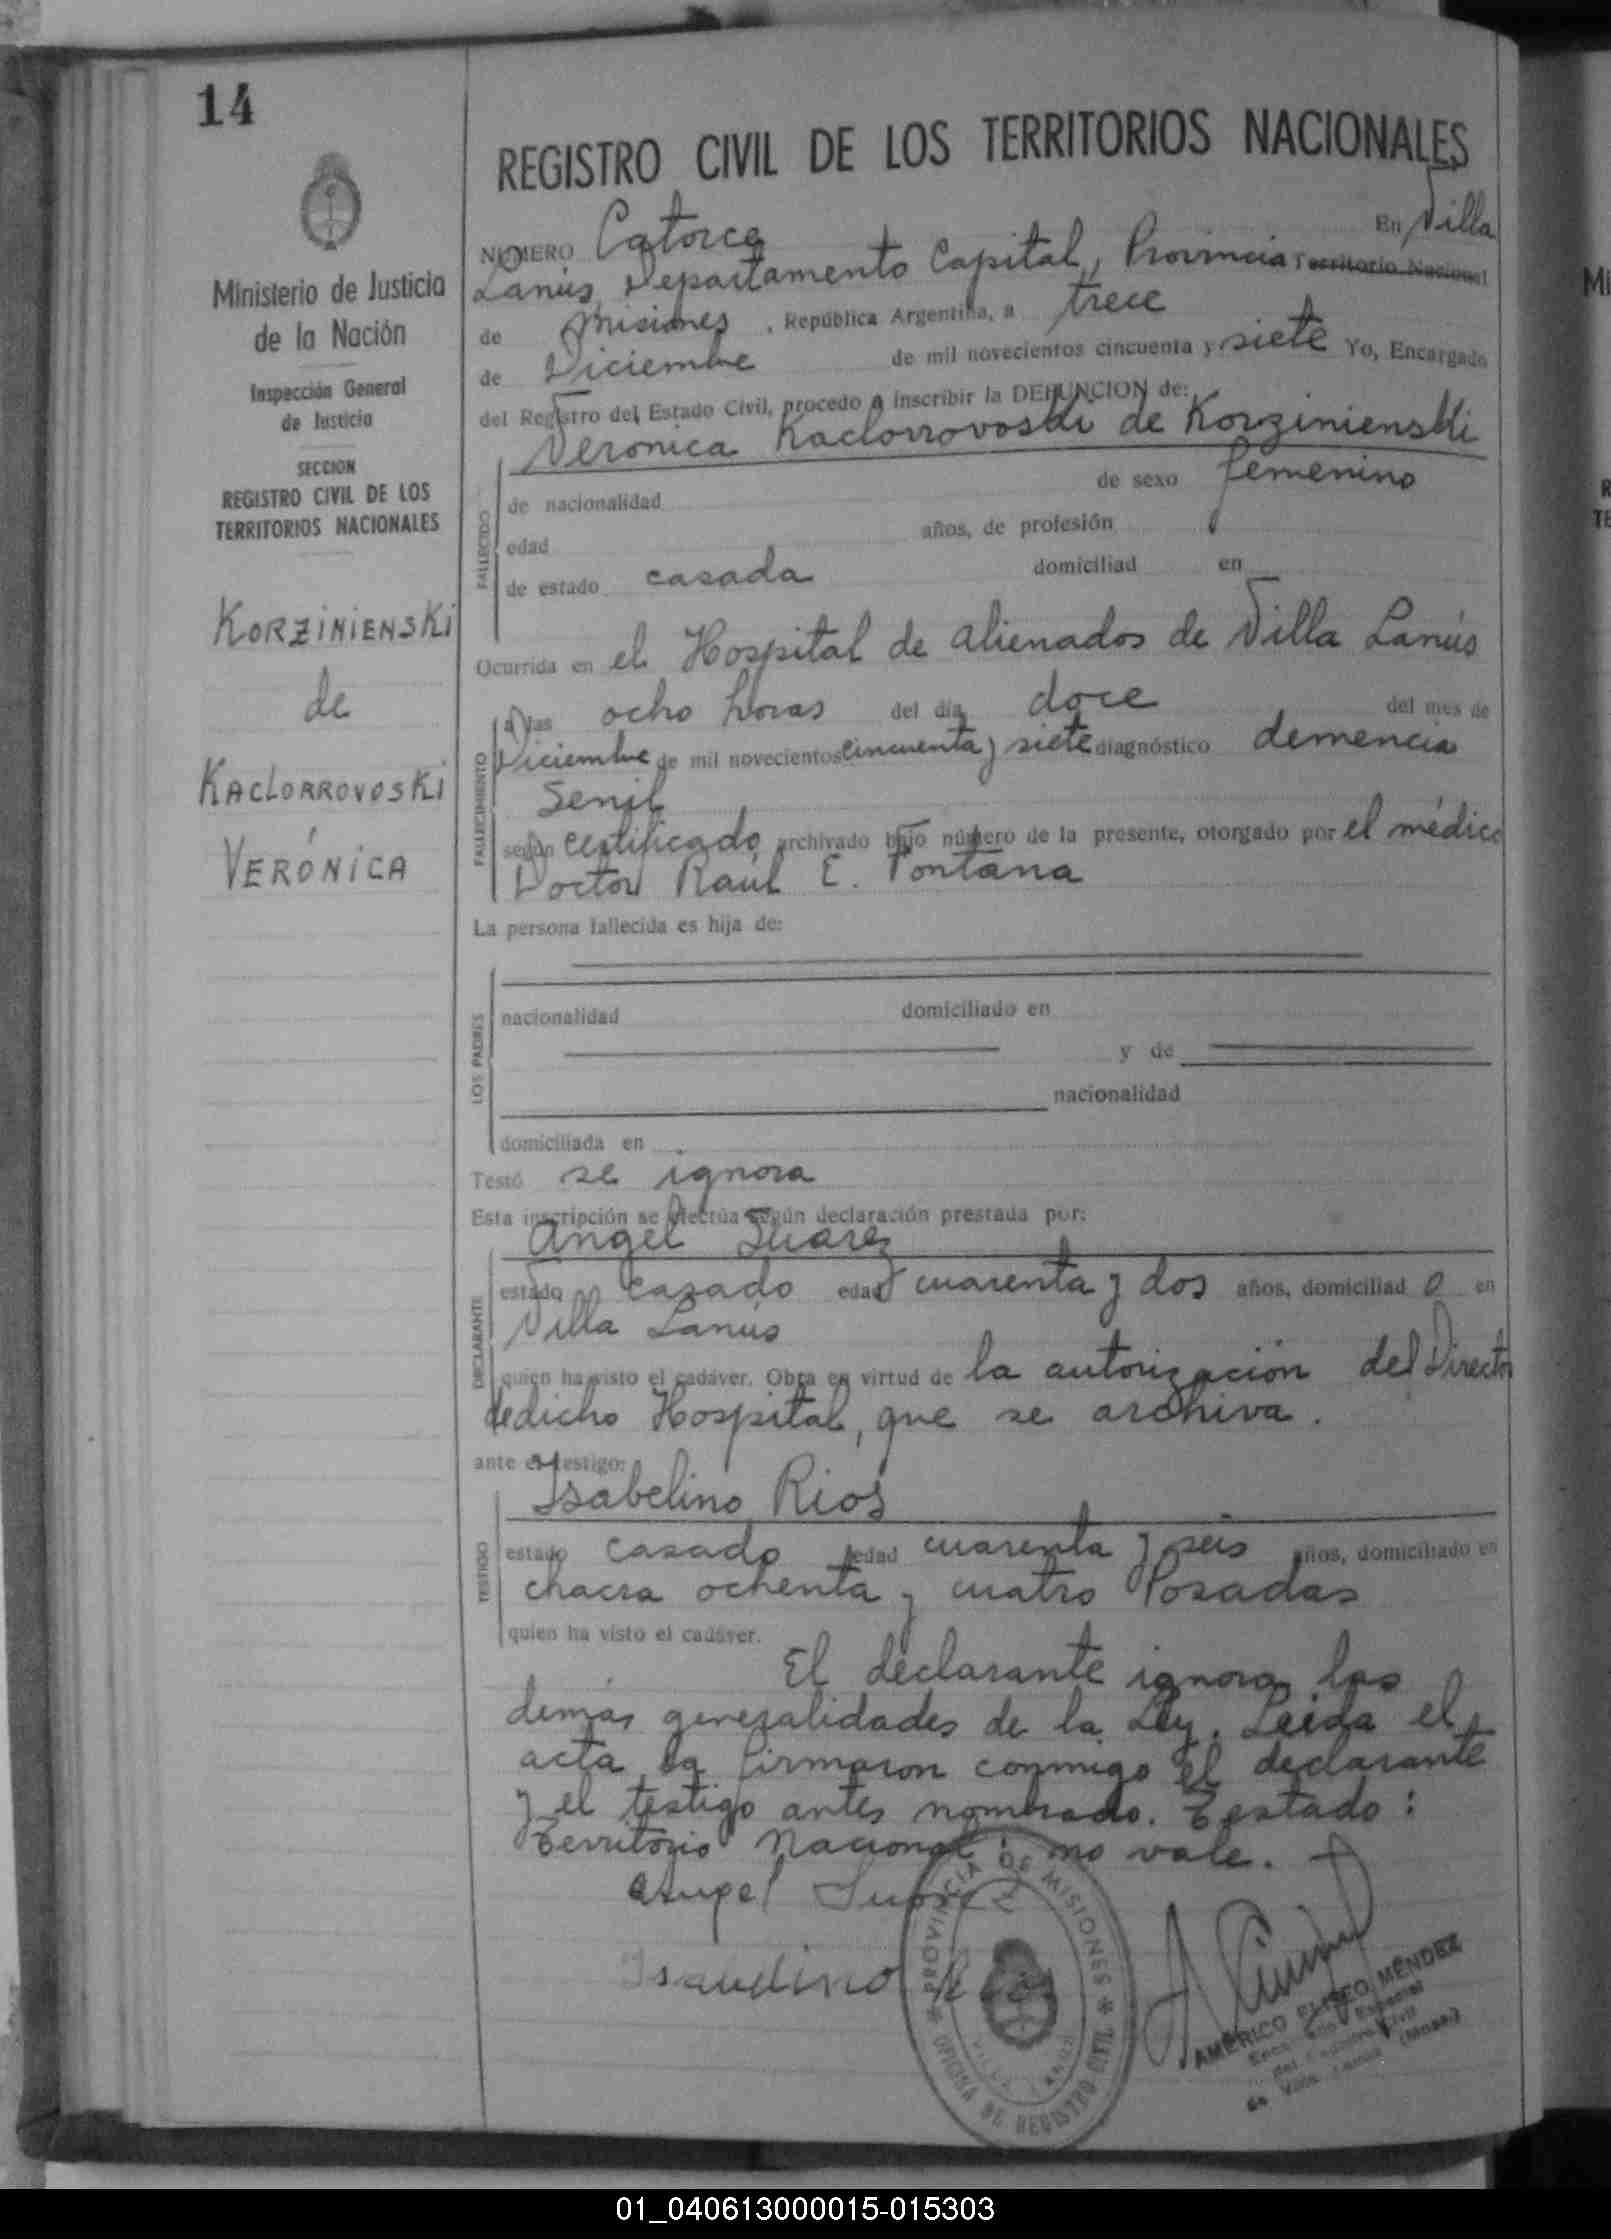 14
Ministerio de Justicia
de la Nación
Inspección General
de Justicia
SECCION
REGISTRO CIVIL DE LOS
TERRITORIOS NACIONALES
KORZINIENSKI
de
KACLORROVOSKI
VERÓNICA
REGISTRO CIVIL DE LOS TERRITORIOS NACIONALES
NUMERO Catorce En Villa
Lanús, Departamento Capital, Provincia Territorio Nacional
de Misiones, República Argentina, a trece
de Diciembre de mil novecientos cincuenta y siete Yo, Encargado
del Registro del Estado Civil, procedo a inscribir la DEFUNCION de:
Veronica Kaclorrovoski de Korzinienski
FALLECIDO
de nacionalidad de sexo femenino
edad años, de profesión
de estado casada domiciliad en
Ocurrida en el Hospital de alienados de Villa Lanús
FALLECIMIENTO
a las ocho horas del día doce del mes de
Diciembre de mil novecientos cincuenta y siete diagnóstico demencia
Senil
según certificado archivado bajo número de la presente, otorgado por el médico
Doctor Raúl E. Fontana
La persona fallecida es hija de:
LOS PADRES
nacionalidad domiciliado en
y de
nacionalidad
domiciliada en
Testó se ignora
Esta inscripción se efectúa según declaración prestada por:
Angel Suarez
DECLARANTE
estado casado edad cuarenta y dos años, domiciliad o en
Villa Lanús
quien ha visto el cadáver. Obra en virtud de la autorización del Director
de dicho Hospital, que se archiva.
ante el testigo:
Isabelino Rios
TESTIGO
estado casado edad cuarenta y seis años, domiciliado en
chacra ochenta y cuatro Posadas
quien ha visto el cadáver.
El declarante ignora las
demás generalidades de la Ley. Leída el
acta la firmaron conmigo el declarante
y el testigo antes nombrado. Testado:
Territorio Nacional: no vale.
Angel Suarez
PROVINCIA DE MISIONES
OFICINA DE REGISTRO CIVIL
VILLA LANUS
AMÉRICO ELISEO MÉNDEZ
del Registro Civil
de Villa Lanús (Mnes.)
01_040613000015-015303